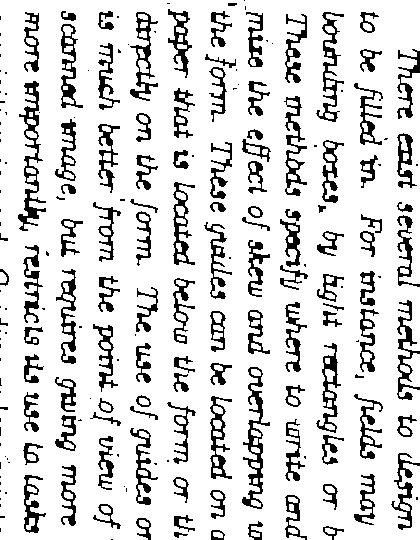 There exist several methods to design
to be filled in. For instance, fields may
bounding boxes, by light rectangles or b
These methods specify where to write and
mize the effect of skew and overlapping w
the form. These guides can be located on a
paper that is located below the form or th
directly on the form. The use of guides on
is much better from the point of view of
scanned image, but requires giving more
more importantly, restricts its use to tasks